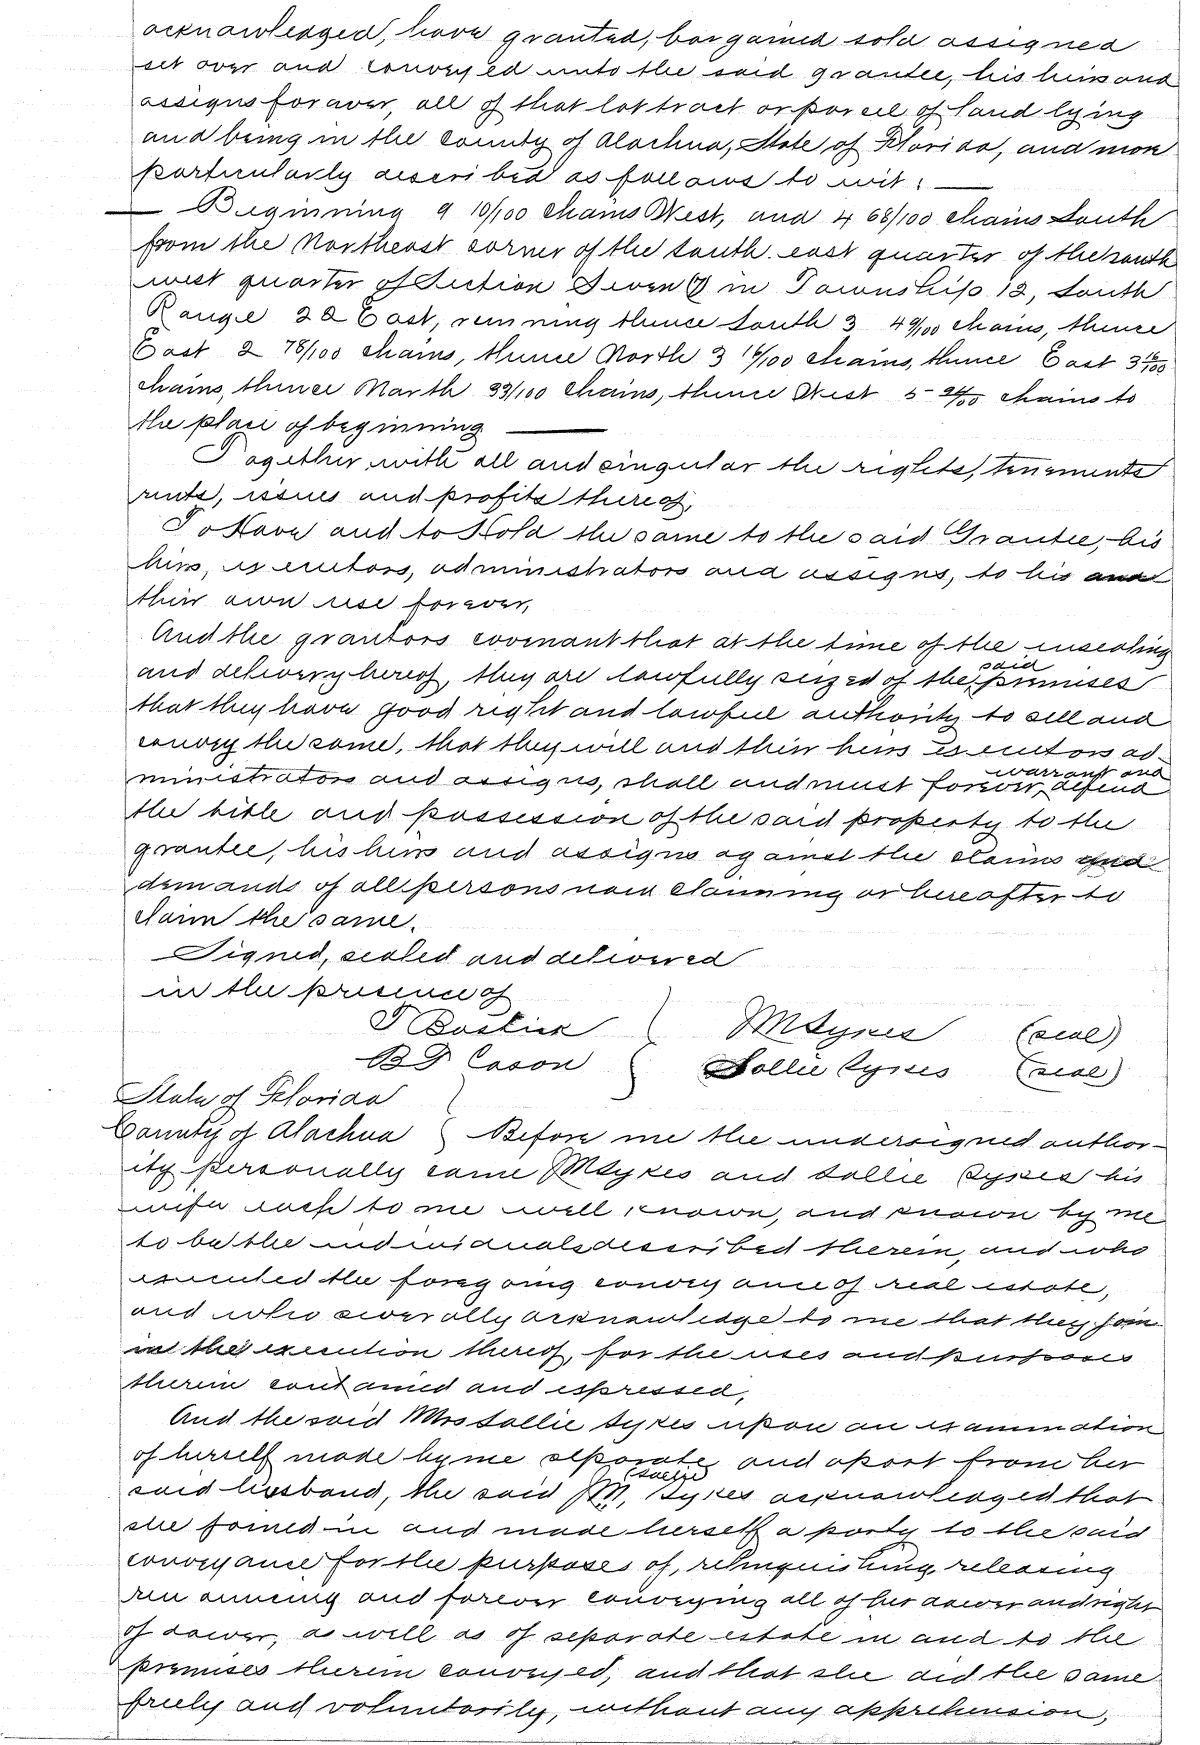 acknowledged, have granted, bargained sold assigned
set over and conveyed unto the said grantee, his heirs and
assigns forever, all of that lot tract or parcel of land lying
and being in the County of Alachua, State of Florida, and more
particularly described as follows to wit: —
— Beginning 9 10/100 chains West, and 4 68/100 chains South
from the Northeast corner of the South east quarter of the south
west quarter of Section Seven (7) in Township 12, South
Range 22 East, running thence South 3 49/100 chains, thence
East 2 78/100 chains, thence North 3 16/100 chains, thence East 3 16/100
chains, thence North 33/100 chains, thence West 5 94/100 chains to
the place of beginning —
Together with all and singular the rights, tenements
rents, issues and profits thereof,
To Have and to Hold the same to the said Grantee, his
heirs, executors, administrators and assigns, to his and
their own use forever,
And the grantors covenant that at the time of the ensealing
and delivery hereof, they are lawfully seized of the said premises
that they have good right and lawful authority to sell and
convey the same, that they will and their heirs executors ad-
ministrators and assigns, shall and must forever, warrant and defend
the title and possession of the said property to the
grantee, his heirs and assigns against the claims and
demands of all persons now claiming or hereafter to
claim the same.
Signed, sealed and delivered
in the presence of
T Bostick } JM Sykes (seal)
B F Cason } Sallie Sykes (seal)
State of Florida }
County of Alachua } Before me the undersigned author-
ity personally came JM Sykes and Sallie Sykes his
wife each to me well known, and known by me
to be the individuals described therein, and who
executed the foregoing conveyance of real estate,
and who severally acknowledge to me that they join
in the execution thereof, for the uses and purposes
therein contained and expressed,
And the said Mrs Sallie Sykes upon an examination
of herself made by me separate and apart from her
said husband, the said JM, (Sallie) Sykes acknowledged that
she joined in and made herself a party to the said
conveyance for the purposes of, relinquishing, releasing
renouncing and forever conveying all of her dower and right
of dower, as well as of separate estate in and to the
premises therein conveyed, and that she did the same
freely and voluntarily, without any apprehension,